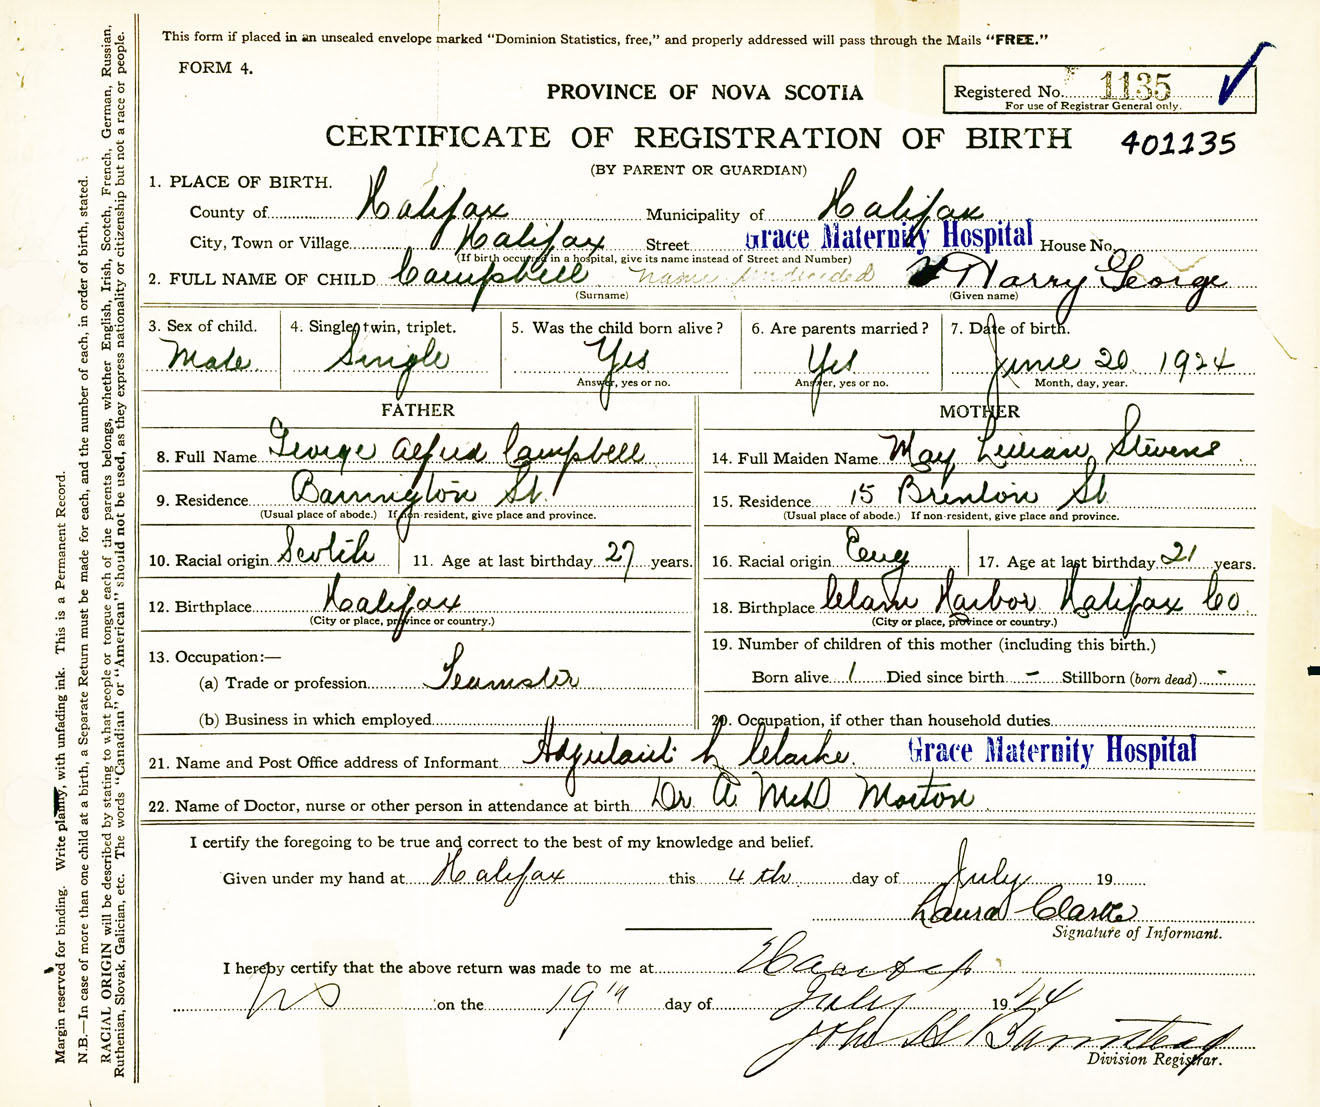 This form if placed in an unsealed envelope marked "Dominion Statistics, free," and properly addressed will pass through the Mails "FREE."
FORM 4.
PROVINCE OF NOVA SCOTIA
Registered No. 1135
For use of Registrar General only.
CERTIFICATE OF REGISTRATION OF BIRTH 401135
(BY PARENT OR GUARDIAN)
1. PLACE OF BIRTH.
County of Halifax Municipality of Halifax
City, Town or Village Halifax Street Grace Maternity Hospital House No.
(If birth occurred in a hospital, give its name instead of Street and Number)
2. FULL NAME OF CHILD Campbell name undecided Harry George
(Surname) (Given name)
3. Sex of child. 4. Single, twin, triplet. 5. Was the child born alive? 6. Are parents married? 7. Date of birth.
Male Single Yes Yes June 20 1924
Answer, yes or no. Answer, yes or no. Month, day, year.
FATHER MOTHER
8. Full Name George Alfred Campbell 14. Full Maiden Name May Lillian Stevens
9. Residence Barrington St. 15. Residence 15 Brenton St.
(Usual place of abode.) If non-resident, give place and province. (Usual place of abode.) If non-resident, give place and province.
10. Racial origin Scotch 11. Age at last birthday 27 years. 16. Racial origin Eng 17. Age at last birthday 21 years.
12. Birthplace Halifax 18. Birthplace Clam Harbor Halifax Co
(City or place, province or country.) (City or place, province or country.)
13. Occupation:— 19. Number of children of this mother (including this birth.)
(a) Trade or profession Teamster Born alive 1 Died since birth - Stillborn (born dead) -
(b) Business in which employed 20. Occupation, if other than household duties
21. Name and Post Office address of Informant L Clarke Grace Maternity Hospital
22. Name of Doctor, nurse or other person in attendance at birth Dr. A McD Morton
I certify the foregoing to be true and correct to the best of my knowledge and belief.
Given under my hand at Halifax this 4th day of July 19
Laura Clarke
Signature of Informant.
I hereby certify that the above return was made to me at Halifax
NS on the 19th day of July 1924
John H Barnstead
Division Registrar.
Margin reserved for binding. Write plainly, with unfading ink. This is a Permanent Record.
N.B.—In case of more than one child at a birth, a Separate Return must be made for each, and the number of each, in order of birth, stated.
RACIAL ORIGIN will be described by stating to what people or tongue each of the parents belongs, whether English, Irish, Scotch, French, German, Russian,
Ruthenian, Slovak, Galician, etc. The words "Canadian" or "American" should not be used, as they express nationality or citizenship but not a race or people.